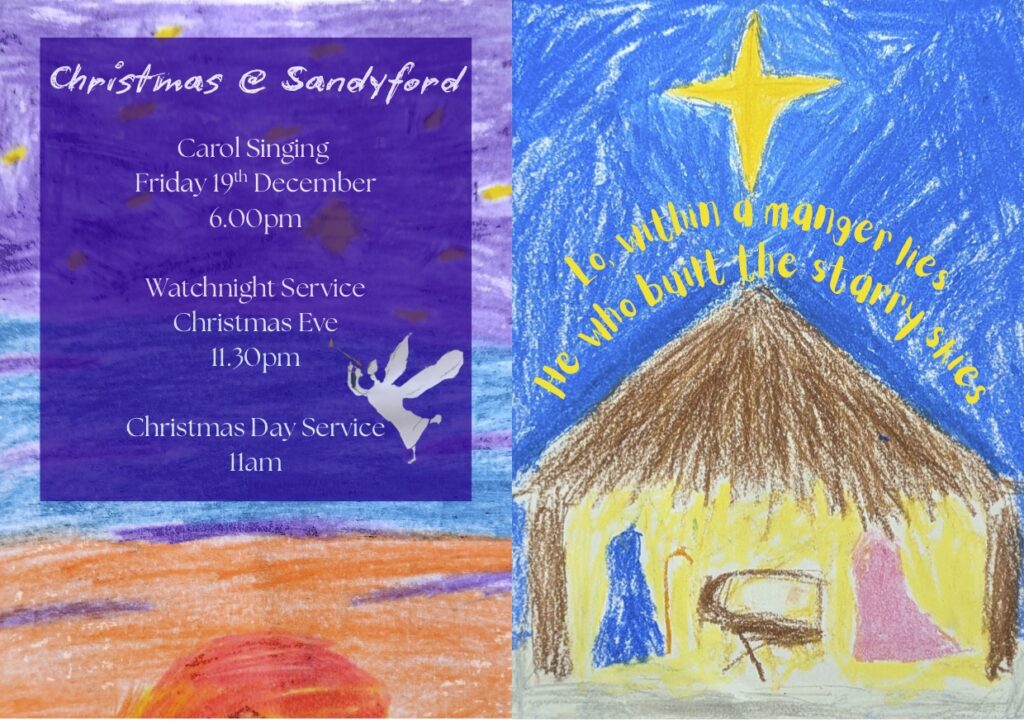 Christmas @ Sandyford
Carol Singing
Friday 19th December
6.00pm
Watchnight Service
Christmas Eve
11.30pm
Christmas Day Service
11am
Lo, within a manger lies
He who built the starry skies